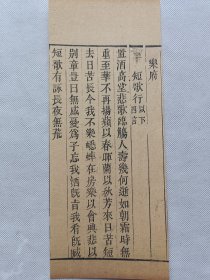 樂府
短歌行以下四言
置酒高堂悲歌臨觴人壽幾何逝如朝霜時無
重至華不再揚蘋以春暉蘭以秋芳來日苦短
去日苦長今我不樂蟋蟀在房樂以會興悲以
別章豈曰無感憂爲子忘我酒旣旨我肴旣臧
短歌有詠長夜無荒